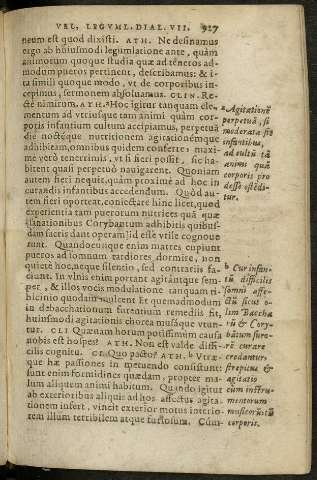 VEL, LEGVMI. DIAL. VII. 927
neum est quod dixisti. ATH. Ne desinamus
ergo ab huiusmodi legumlatione ante, quàm
animorum quoque studia quæ ad teneros ad-
modum pueros pertinent, describamus: & i-
ta simili quoque modo, vt de corporibus in-
cepimus, sermonem absoluamus. CLIN. Re-
ctè nimirum. ATH. a Hoc igitur tanquam ele-
mentum ad vtriusque tam animi quàm cor-
poris infantium cultum accipiamus, perpetuā
diē noctéque nutritionem agitationémque
adhibitam, omnibus quidem conferre: maxi-
mè verò tenerrimis, vt si fieri posset, sic ha-
bitent quasi perpetuò nauigarent. Quoniam
autem fieri nequit, quàm proximè ad hoc in
curandis infantibus accedendum. Quòd au-
tem fieri oporteat, coniectare hinc licet, quòd
experientia tam puerorum nutrices quà quæ
sanationibus Corybantum adhibitis quibus-
dam sacris dant operam, id esse vtile cognoue
runt. Quandocunque enim matres cupiunt
pueros ad somnum tardiores, dormire, non
quietē hoc, neque silentio, sed contrariis fa-
ciunt. In vlnis enim portant agitántque sem-
per, & illos vocis modulatione tanquam ti-
bicinio quodam mulcent. Et quemadmodum
in debacchationum furentium remediis fit,
huiusmodi agitationis chorea musáque vtun-
tur. CLI. Quænam horum potissimùm causa
nobis est hospes? ATH. Non est valde diffi-
cilis cognitu. CL. Quo pacto? ATH. b Vtræ-
que hæ passiones in metuendo consistunt:
sunt enim formidines quædam, propter ma-
lum aliquem animi habitum. Quando igitur
ab exterioribus aliquis ad hos affectus agita-
tionem infert, vincit exterior motus interio-
rem illum terribilem atque furiosum. Cùm-
a Agitationē
perpetuā, si
moderata sit
infantibus,
ad cultū tā
animi quā
corporis pro
desse ostēdi-
tur.
b Cur infan-
tū difficilis
somni affe-
ctū sicut o-
lim Baccha
rū & Cory-
bātum furo-
rē curare
credantur
strepitus &
agitatio
cum instru-
mentorum
musicorū tū
corporis.